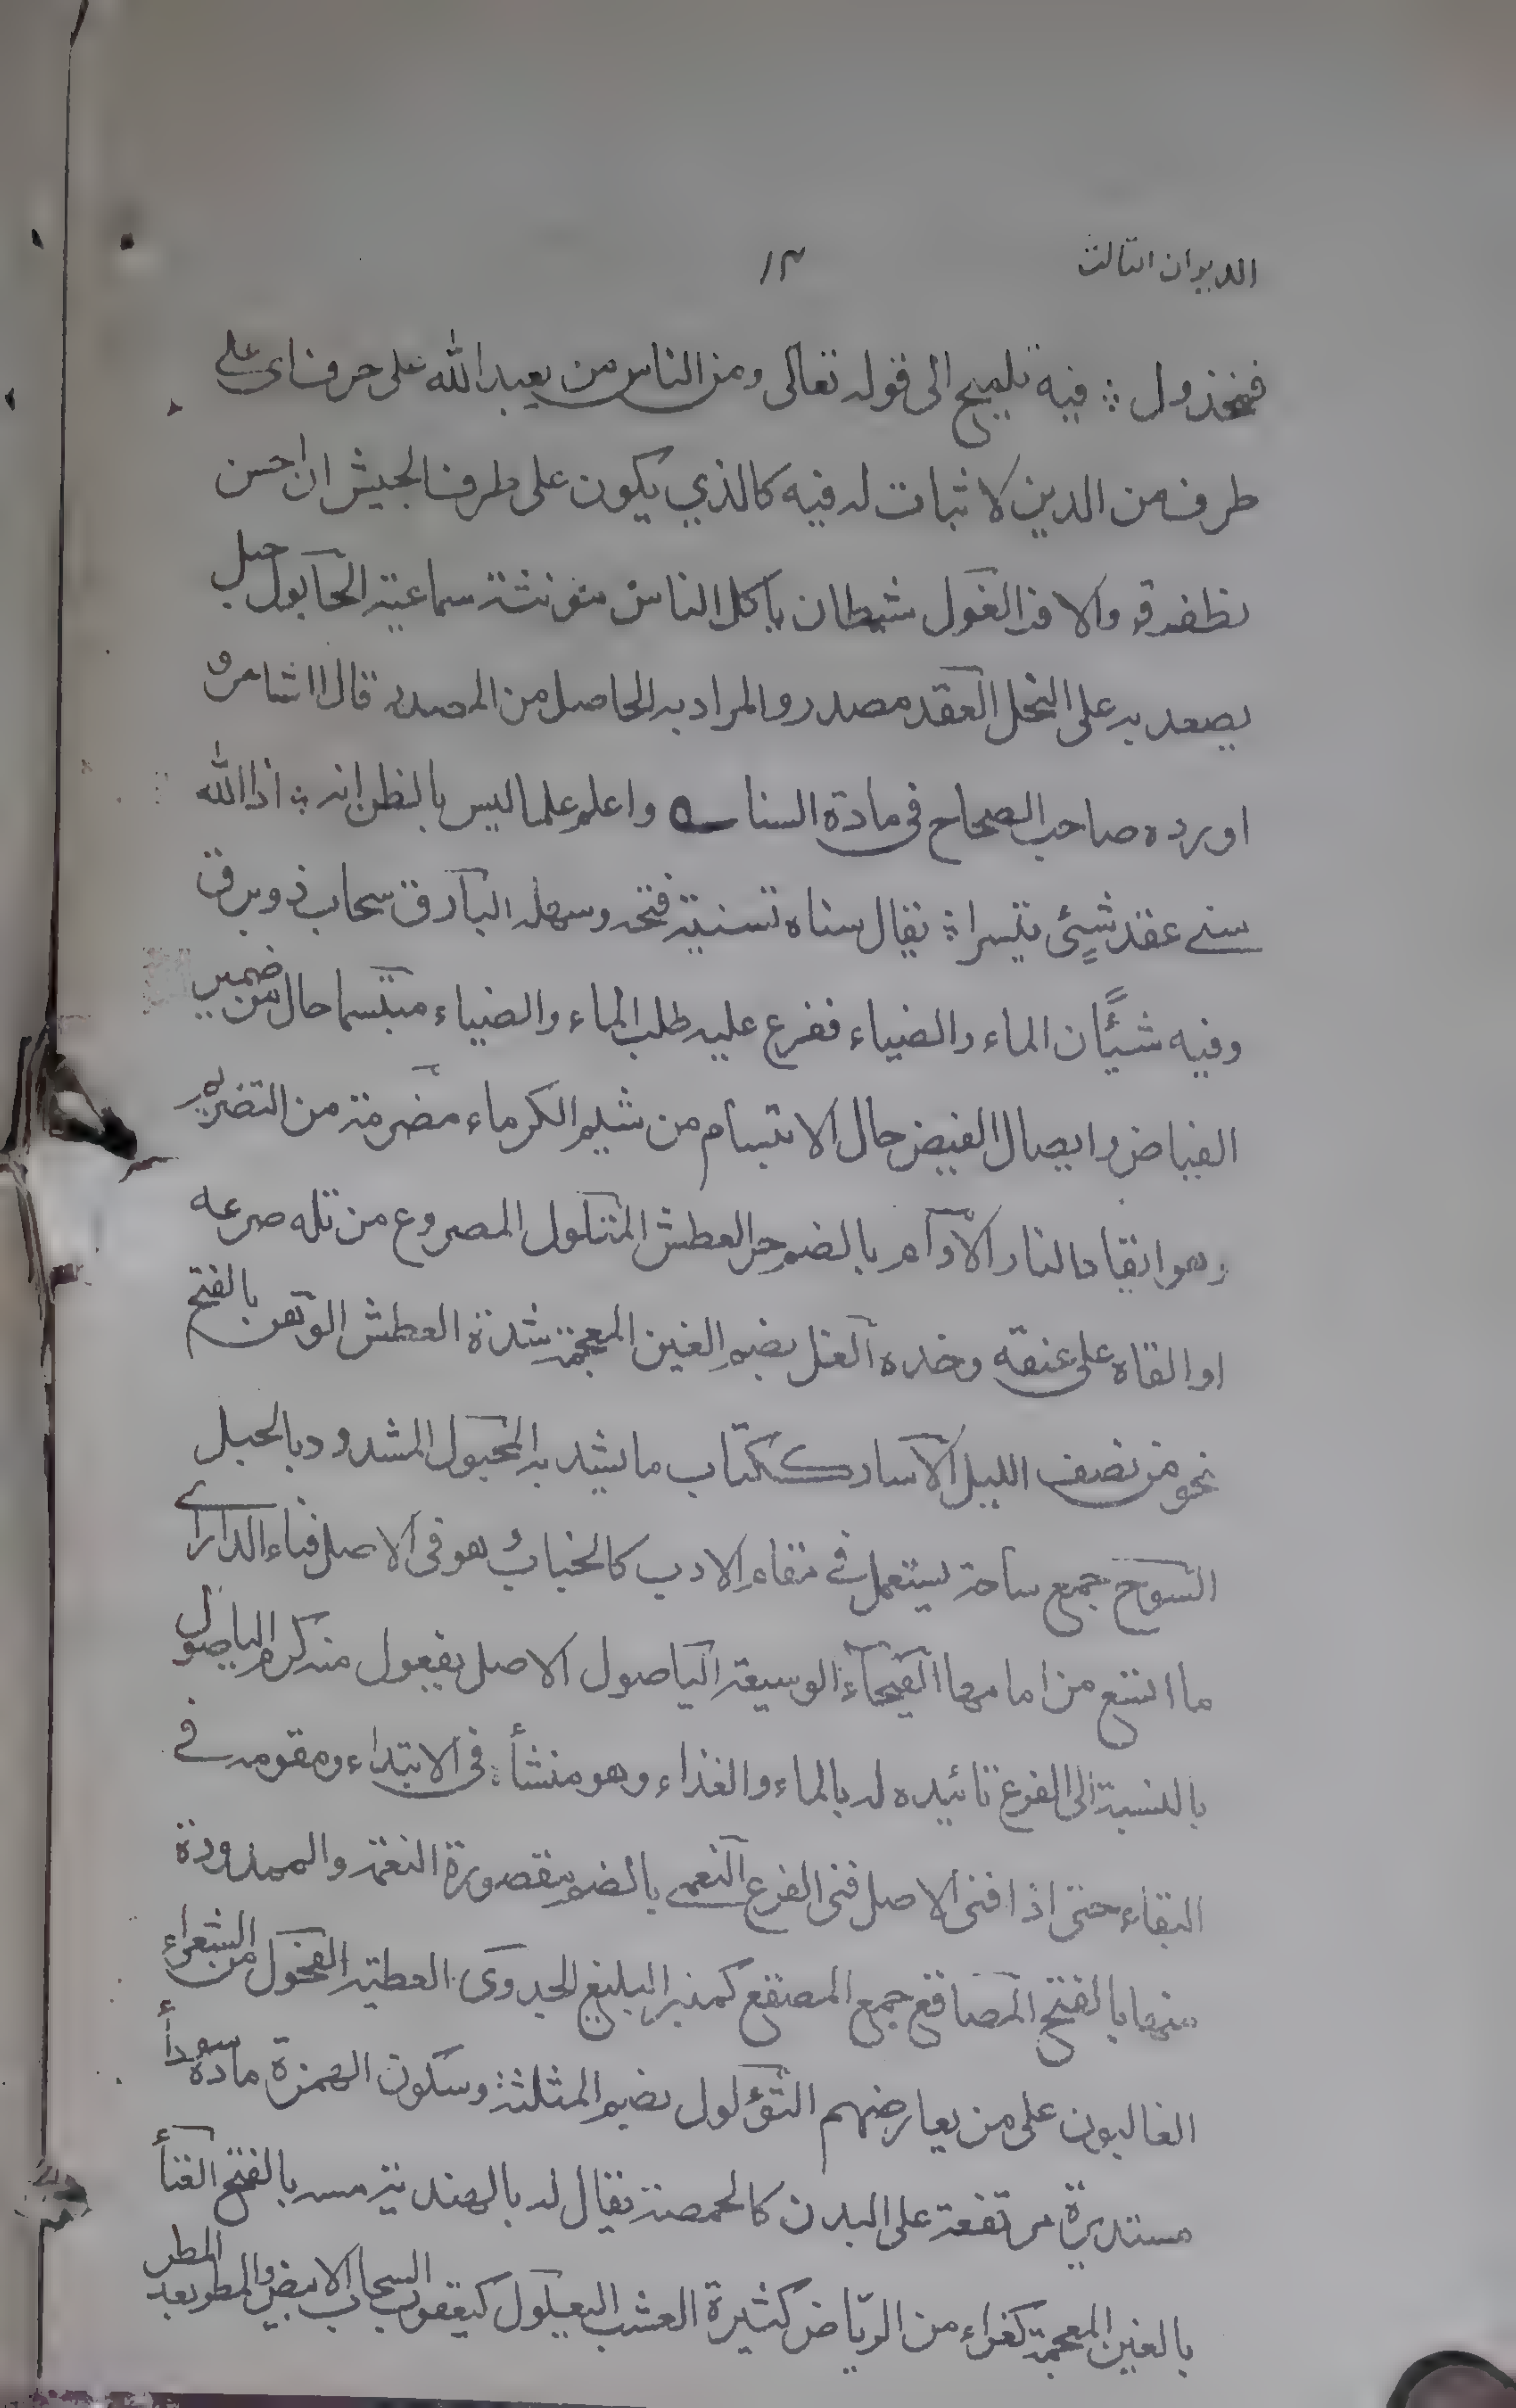 الديوان الثالث ١٣
فمخذول ؞ فيه تلميح الى قوله تعالى ومن الناس من يعبد الله على حرف اى على
طرف من الدين لا ثبات له فيه كالذي يكون على طرف الجيش ان احس
بظفر قر والا فر الغول شيطان ياكل الناس مؤنثة سماعية الحابول حبل
يصعد به على النخل العقد مصدر والمراد به الحاصل من المصدر قال الشاعر و
اورده صاحب الصحاح فى مادة السنا ؎ واعلم علما ليس بالظن انه ؞ اذا الله
سنے عقد شيئ تيسرا ؞ يقال سناه تسنية فتحه وسهله البارق سحاب ذو برق
وفيه شيئان الماء والضياء ففرع عليه طلب الماء والضياء مبتسما حال من ضمير
الفياض وايصال الفيض حال الابتسام من شيم الكرماء مضرمة من التضرم
وهو اتقاد النار الأوام بالضم حر العطش المتلول المصروع من تله صرعه
او القاه على عنقه وخده الغل بضم الغين المعجمة شدة العطش الوهن بالفتح
نحو من نصف الليل الاسار ككتاب ما يشد به المحبول المشدود بالحبل
السوح جمع ساحة يستعمل فے مقام الادب كالجناب وهو فى الاصل فناء الدار اے
ما اتسع من امامها الفيحاء الوسيعة الياصول الاصل يفعول منه كرم الياصول
بالنسبة الى الفرع تائيده له بالماء والغذاء وهو منشأه فى الابتداء ومقومه فے
البقاء حتى اذا فنى الاصل فنى الفرع النعمے بالضم مقصورة النعمة والممدودة
منها بالفتح المصاقع جمع المصقع كمنبر البليغ الجدوى العطية الفحول من الشعراء
الغالبون على من يعارضهم الثؤلول بضم المثلثة وسكون الهمزة مادة سوداء
مستديرة مرتفعة على البدن كالحمصة يقال له بالهندية مسه بالفتح الغنأ
بالغين المعجمة كغراء من الرياض كثيرة العشب اليعلول كيعقوب السحاب الابيض والمطر بعد المطر